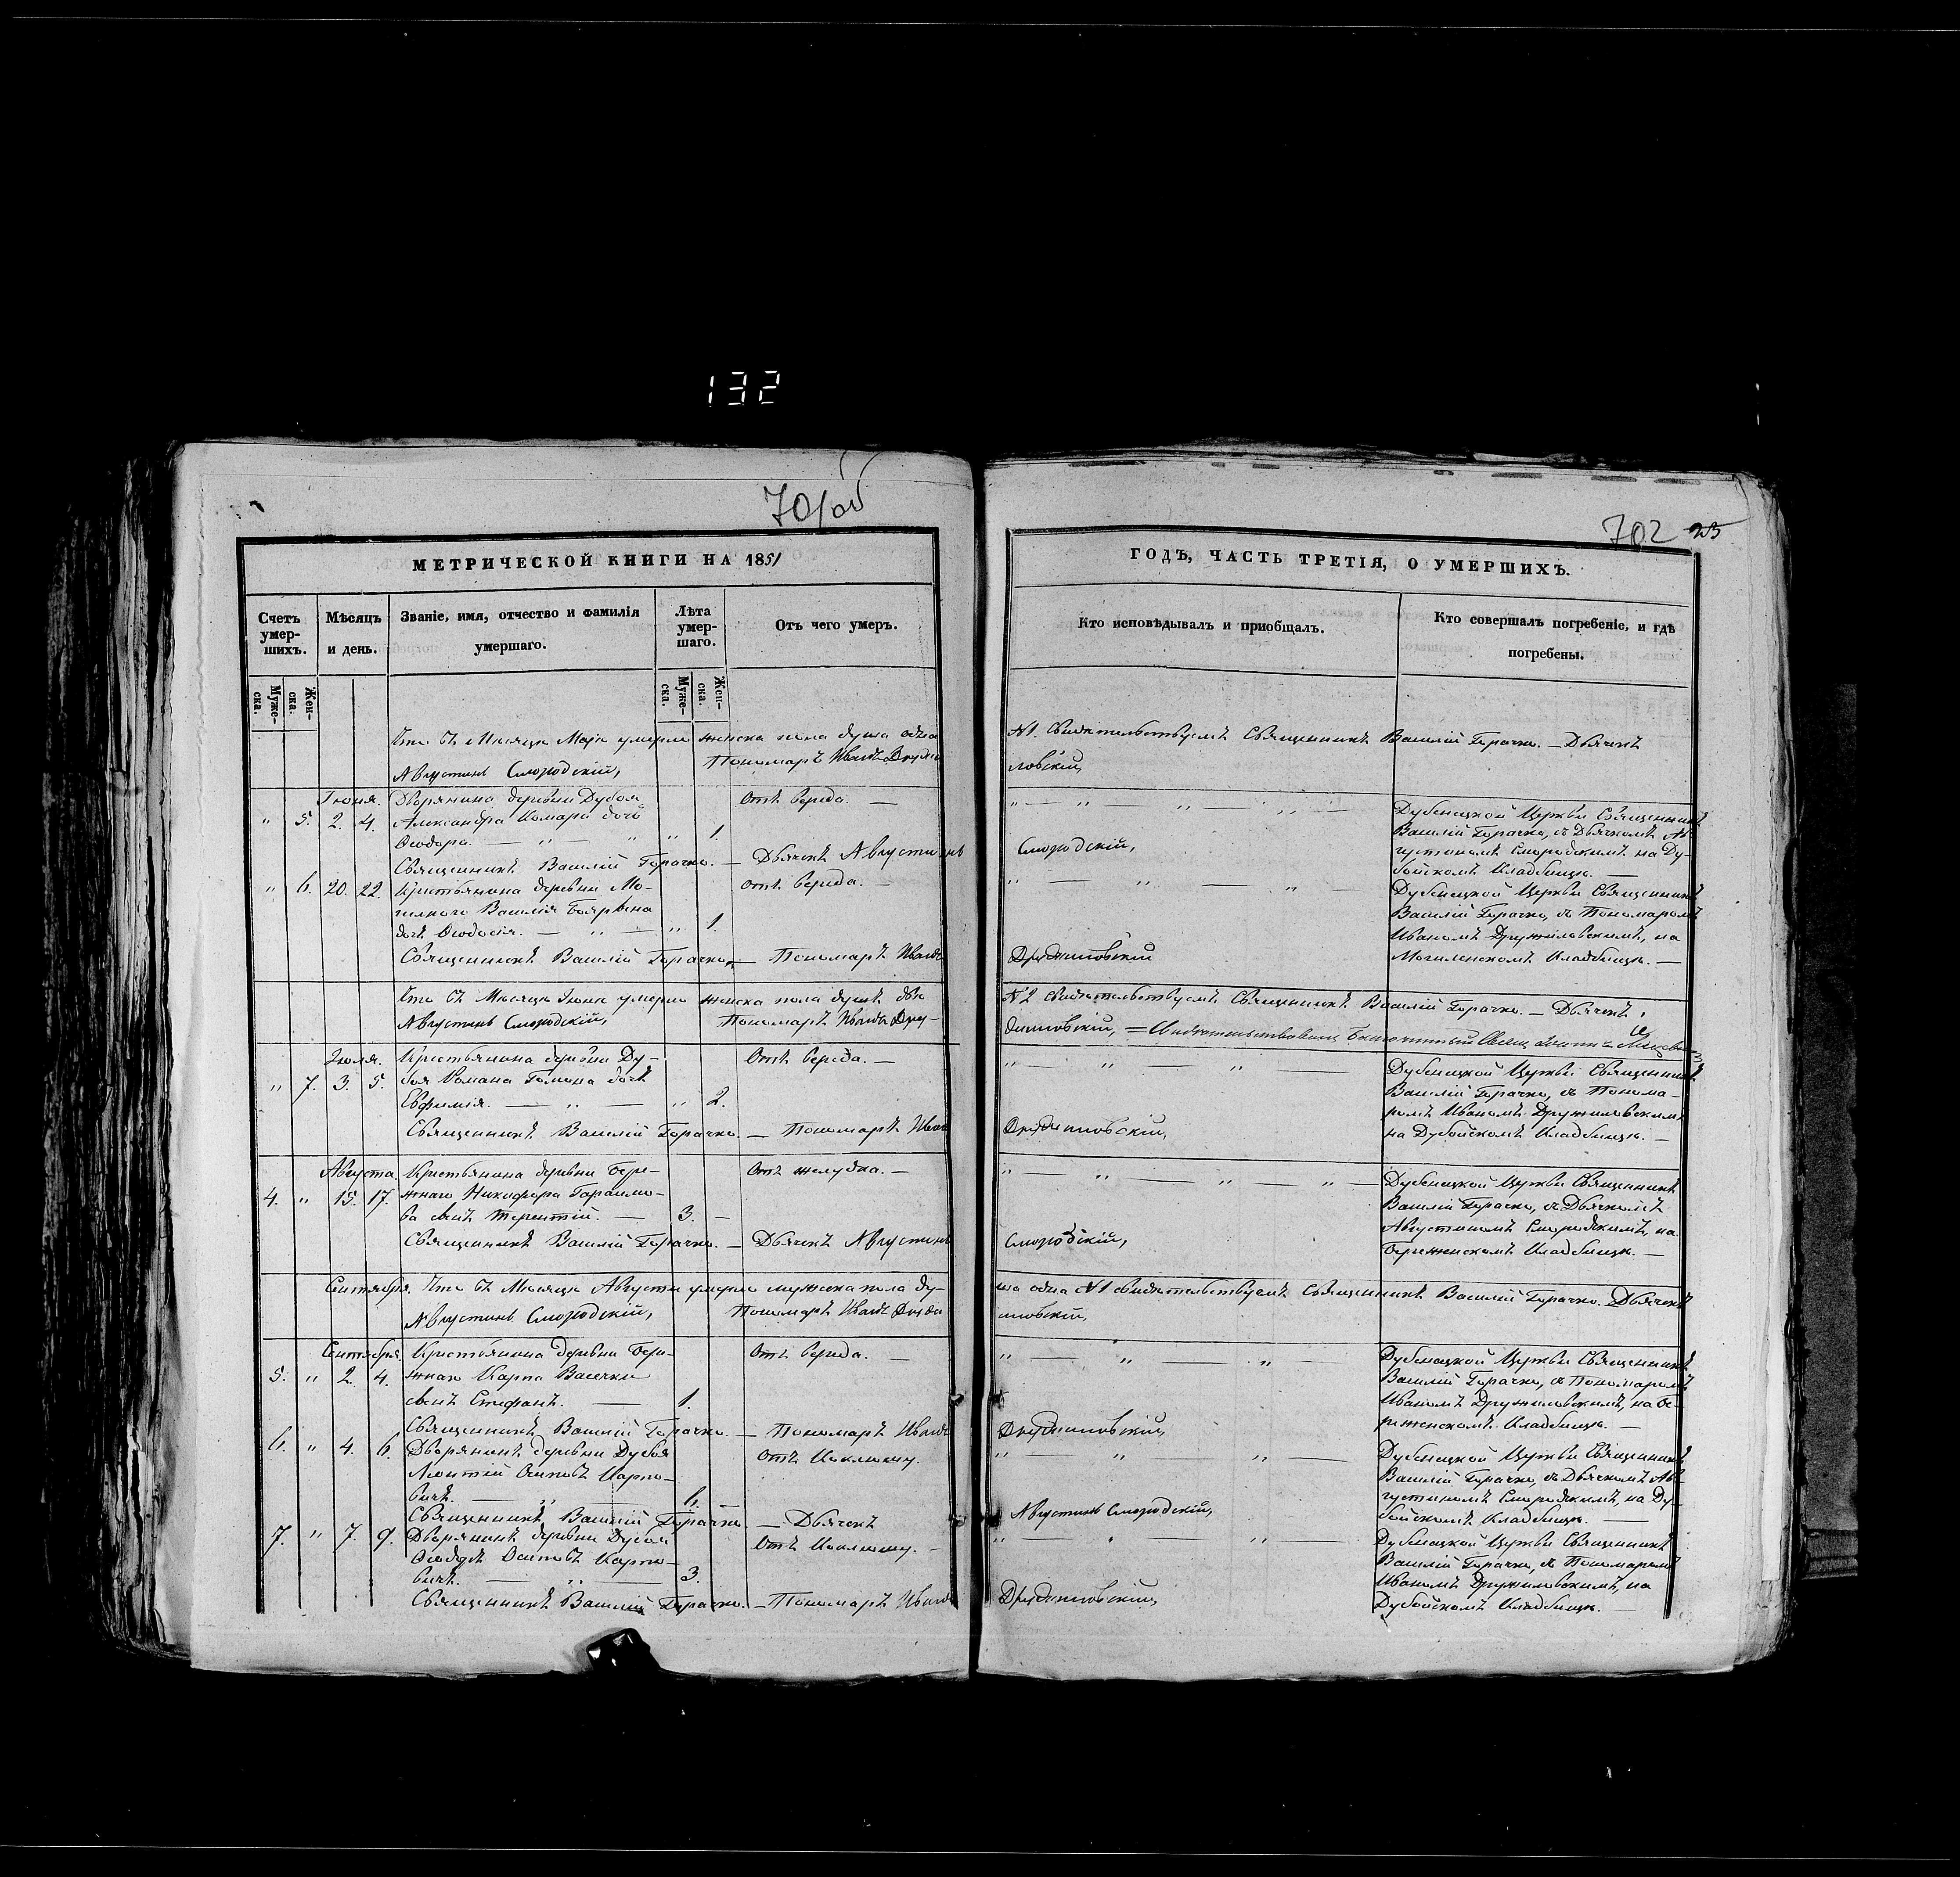 132
701об
МЕТРИЧЕСКОЙ КНИГИ НА 1851
Счетъ умер-шихъ.
Мѣсяцъ и день.
Званіе, имя, отчество и фамилія умершаго.
Лѣта умер-шаго.
Отъ чего умеръ.
Муже-ска.
Жен-ска.
Муже-ска.
Жен-ска.
Что въ Мѣсяцѣ Маіи умерло женска пола душа одна
Августинъ Смородскій, Пономарь Иванъ Дружи
Іюня. Дворянина деревни Дубои Отъ вереда. —
" 5. 2. 4. Александра Комара дочь
Ѳеодора. — " — " " 1.
Священникъ Василій Горачко. — Дьячекъ Августинъ
" 6. 20. 22. Крестьянина деревни Мо- Отъ вереда. —
гилного Василія
дочь Ѳеодосія. — " — " 1.
Священникъ Василій Горачко, — Пономарь Иванъ
Что въ Мѣсяцѣ Іюнѣ умерло женска пола душъ двѣ
Августинъ Смородскій, Пономарь Иванъ Дру-
Іюля. Крестьянина деревни Ду- Отъ вереда. —
" 7. 3. 5. боя Романа Гомона дочь
Евфимія. — " — " 2.
Священникъ Василій Горачко. — Пономарь Иванъ
Августа. Крестьянина деревни Бере- Отъ желудка. —
4. " 15. 17. жнаго Никифора Гарасимо-
ва сынъ Терентій. — 3. —
Священникъ Василій Горачко. — Дьячекъ Августинъ
Сентября. Что въ Мѣсяцѣ Августѣ умерло мужеска пола ду-
Августинъ Смородскій, Пономарь Иванъ Дружи
Сентября. Крестьянина деревни Бере- Отъ вереда. —
5. " 2. 4. жнаго Карпа
сынъ Стефанъ. — 1.
Священникъ Василій Горачко. — Пономарь Иванъ
6. " 4. 6. Дворянинъ деревни Дубоя Отъ Коклюшу.
Леонтій Осиповъ Карпо-
вичъ. — " — 6.
Священникъ Василій Горачко. — Дьячекъ
7. " 7. 9. Дворянинъ деревни Дубои Отъ Коклюшу. —
Осиповъ Карпо-
вичъ. — " — 3.
Священникъ Василій Горачко. — Пономарь Иванъ
702 25
ГОДЪ, ЧАСТЬ ТРЕТІЯ, О УМЕРШИХЪ.
Кто исповѣдывалъ и пріобщалъ.
Кто совершалъ погребеніе, и гдѣ погребены.
№1. Свидѣтельствуемъ Священникъ Василій Горачко. — Дьячекъ
ловскій,
Дубенецкой Церкви Священникъ
Василій Горачко, съ Дьячкомъ Ав-
Смородскій, густиномъ Смородскимъ на Ду-
бойскомъ Кладбищѣ. —
Дубенецкой Церкви Священникъ
Василій Горачко, съ Пономаромъ
Иваномъ Дружиловскимъ, на
Дружиловскій Могиленскомъ Кладбищѣ. —
№2 свидѣтельствуемъ Священникъ Василій Горачко. — Дьячекъ
жиловскій, = Свидѣтельствовалъ Благочинный
Дубенецкой Церкви Священникъ
Василій Горачко, съ Понома-
ромъ Иваномъ Дружиловскимъ
Дружиловскій, на Дубойскомъ Кладбищѣ. —
Дубенецкой Церкви Священникъ
Василій Горачко, съ Дьячкомъ
Августиномъ Смородскимъ, на
Смородскій, Береженскомъ Кладбищѣ. —
ша одна №1 свидѣтельствуемъ Священникъ Василій Горачко. Дьячекъ
ловскій,
Дубенецкой Церкви Священникъ
Василій Горачко, съ Пономаромъ
Иваномъ Дружиловскимъ, на Бе-
Дружиловскій, реженскомъ Кладбищѣ. —
Дубенецкой Церкви Священникъ
Василій Горачко, съ Дьячкомъ Ав-
густиномъ Смородскимъ, на Ду-
Августинъ Смородскій, бойскомъ Кладбищѣ. —
Дубенецкой Церкви Священникъ
Василій Горачко, съ Пономаромъ
Иваномъ Дружиловскимъ, на
Дружиловскій, Дубойскомъ Кладбищѣ. —